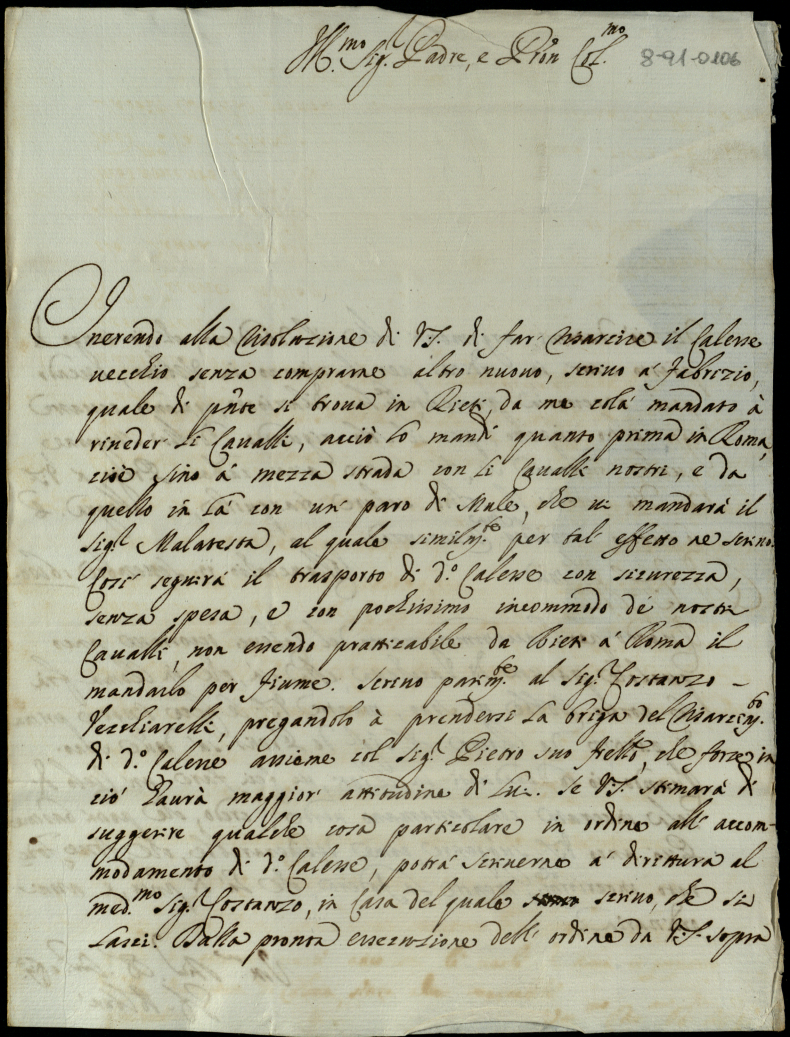 Ill.mo Sig.r Padre, e Pron Col.mo
8-91-0106
Inerendo alla Risoluzione di V.S. di far risarcire il Calesse
vecchio senza comprarne altro nuovo, scrivo à Fabrizio,
quale di pnte si trova in Rieti, da me colà mandato à
riveder li Cavalli, acciò lo mandi quanto prima in Roma,
cioè sino à mezza strada con li Cavalli nostri, e da
quello in là con un' paro di Mule, che vi mandarà il
Sig.r Malatesta, al quale similm.te per tal' effetto ne scrivo.
Così seguirà il trasporto di d.o Calesse con sicurezza,
senza spesa, e con pochissimo incommodo de nostri
Cavalli, non essendo pratticabile da Rieti à Roma il
mandarlo per fiume. Scrivo parim.te al Sig.r Costanzo
Vecchiarelli, pregandolo à prendersi la briga del Risarcim.to
di d.o Calesse assieme col Sig.r Pietro suo frello, che forze in
ciò haurà maggior' attitudine di Lui. Se V.S. stimarà di
suggerire qualche cosa particolare in ordine all' accom-
modamento di d.o Calesse, potrà scriverne à dirittura al
med.mo Sig.r Costanzo, in Casa del quale scrivo, che si
lasci. Dalla pronta essecuzione dell' ordine da V.S. sopra